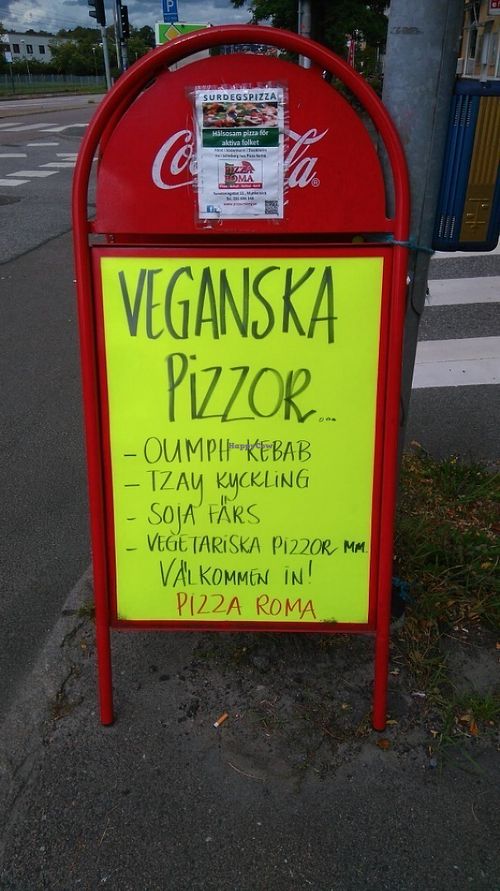 P
SURDEGSPIZZA
Hälsosam pizza för
aktiva folket
Coca-Cola
PIZZA
ROMA
VEGANSKA
PIZZOR...
- OUMPH KEBAB
HappyCow
- TZAY KYCKLING
- SOJA FÄRS
- VEGETARISKA PIZZOR MM.
VÄLKOMMEN IN!
PIZZA ROMA